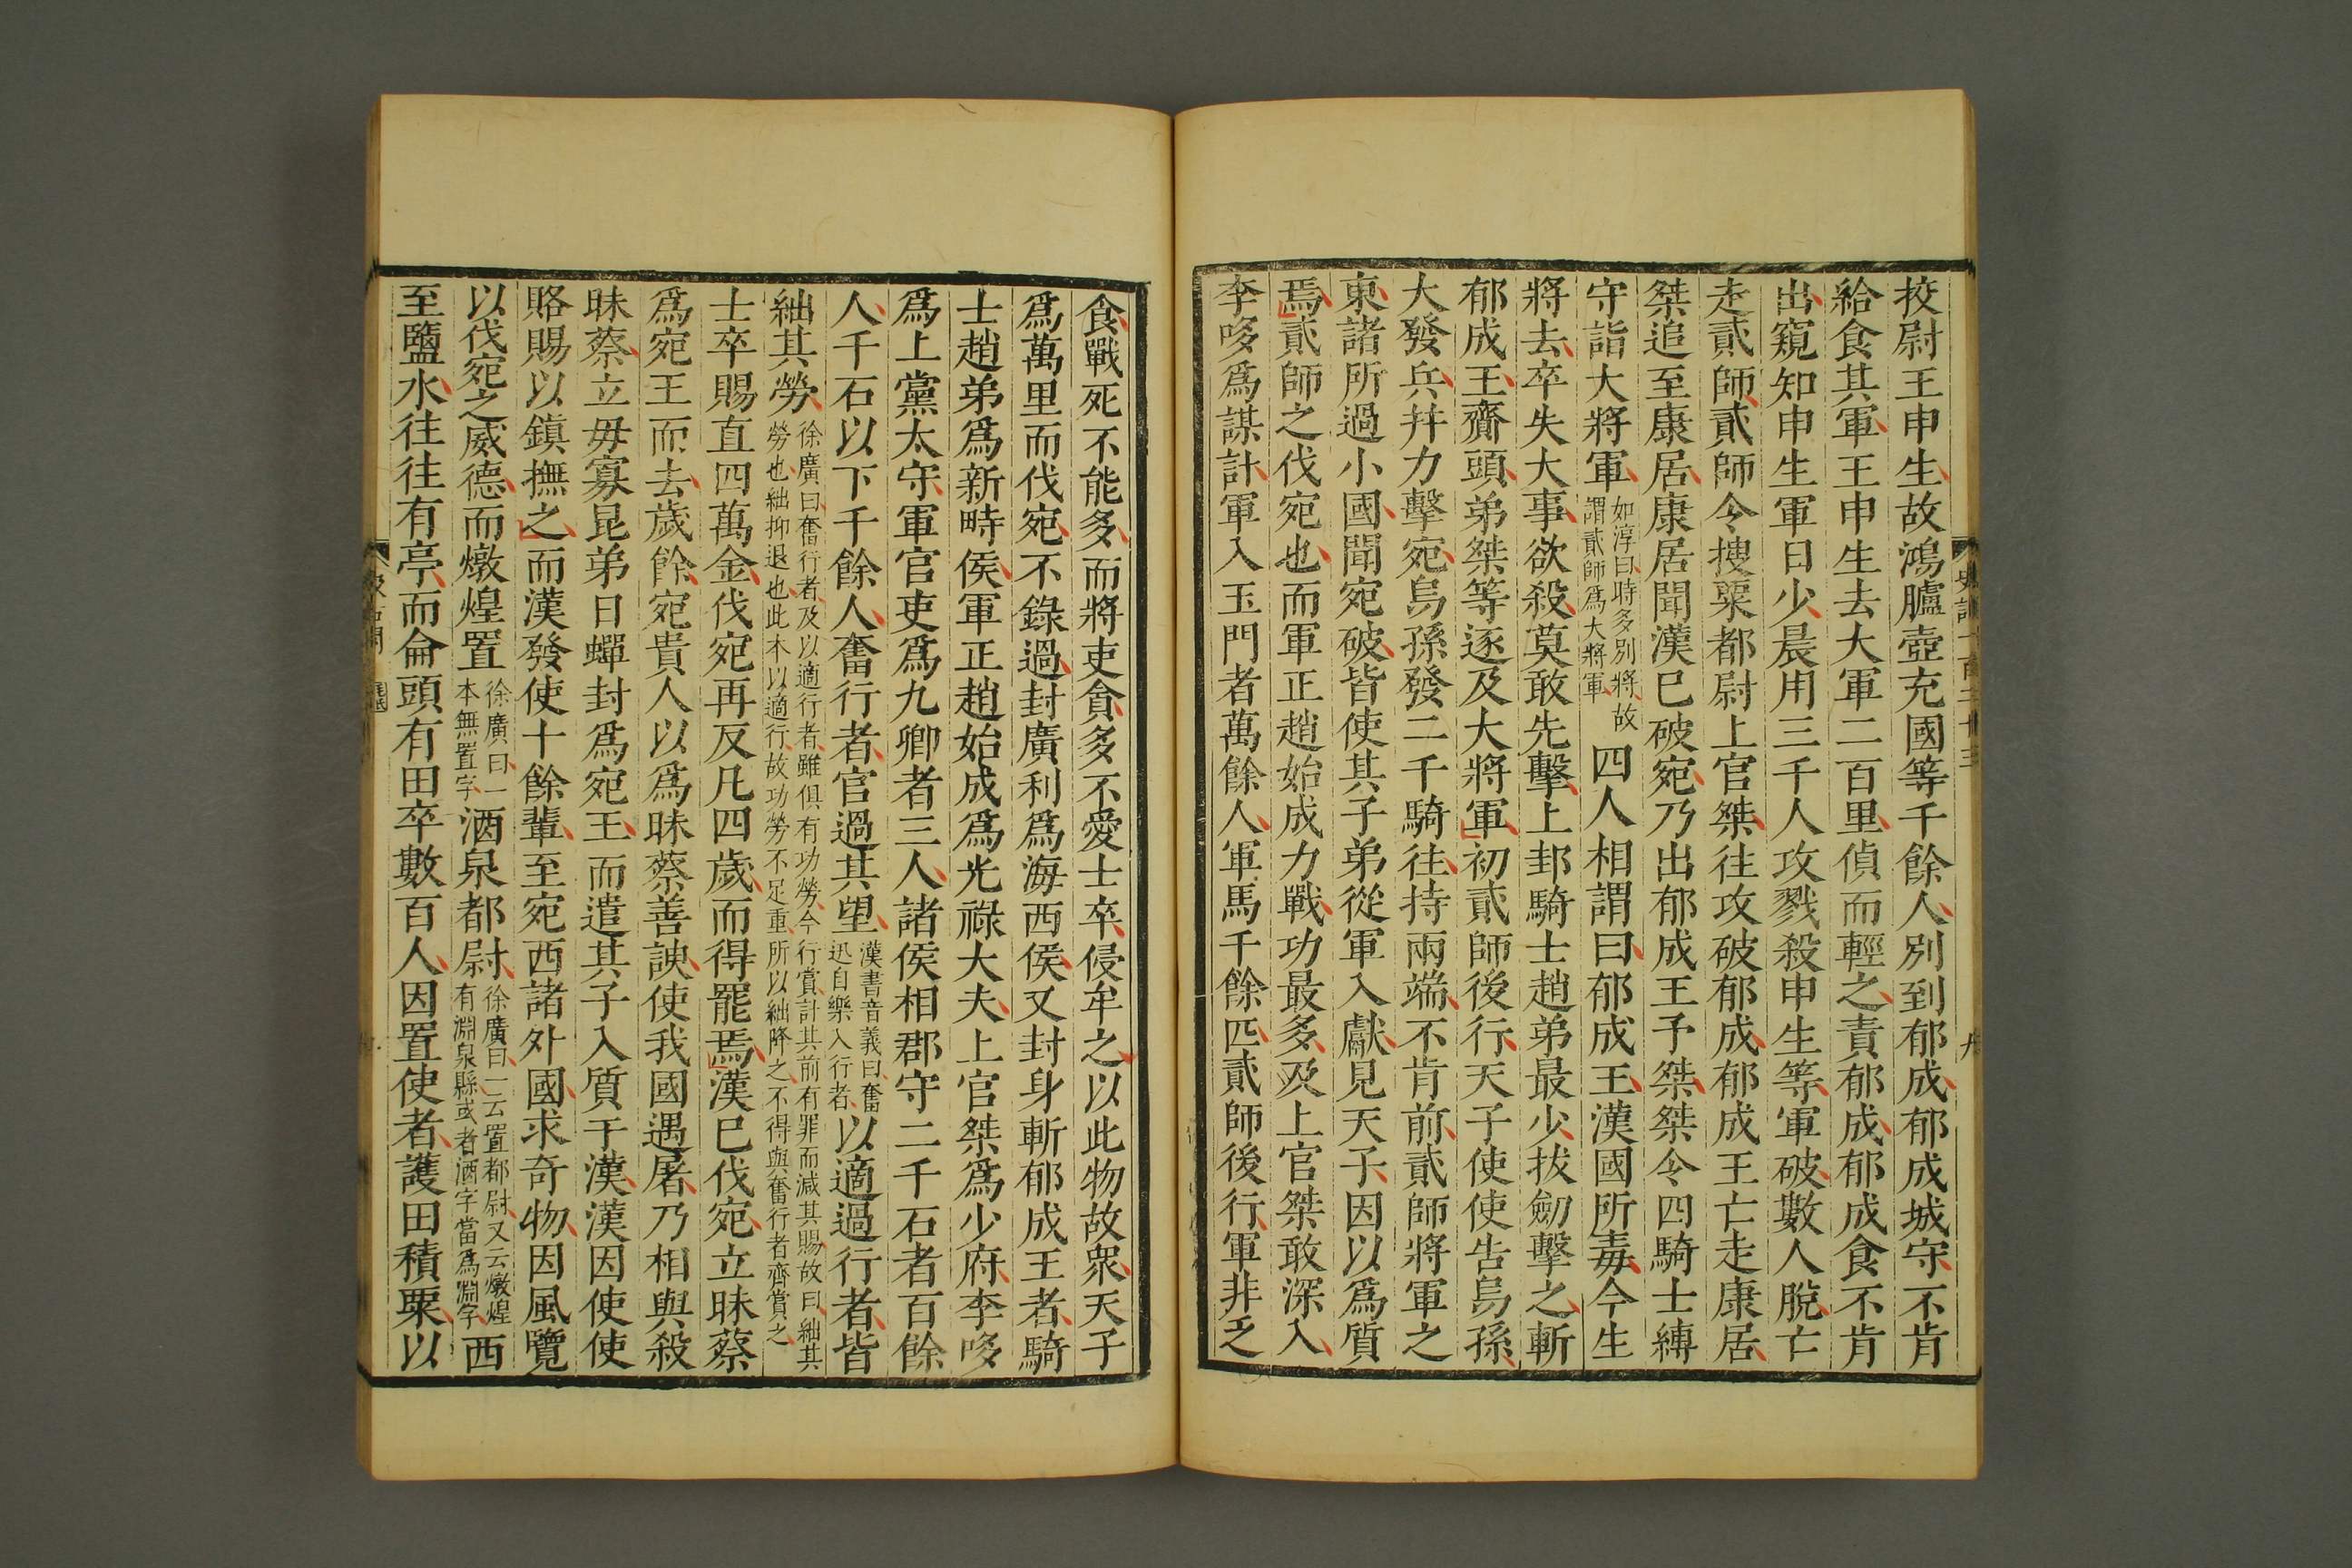 挍尉王申生故鴻臚壺充國等千餘人別到郁成郁成城守不肯
給食其軍王申生去大軍二百里偵而輕之責郁成郁成食不肯
出窺知申生軍日少晨用三千人攻戮殺申生等軍破數人脫亡
走貳師貳師令搜粟都尉上官桀往攻破郁成郁成王亡走康居
桀追至康居康居聞漢已破宛乃出郁成王予桀桀令四騎士縛
守詣大將軍如淳曰時多別將故謂貳師爲大將軍四人相謂曰郁成王漢國所毒今生
將去卒失大事欲殺莫敢先擊上邽騎士趙弟最少拔劒擊之斬
郁成王齎頭弟桀等逐及大將軍初貳師後行天子使使告烏孫
大發兵幷力擊宛烏孫發二千騎往持兩端不肯前貳師將軍之
東諸所過小國聞宛破皆使其子弟從軍入獻見天子因以爲質
焉貳師之伐宛也而軍正趙始成力戰功最多及上官桀敢深入
李哆爲謀計軍入玉門者萬餘人軍馬千餘匹貳師後行軍非乏
食戰死不能多而將吏貪多不愛士卒侵牟之以此物故衆天子
爲萬里而伐宛不錄過封廣利爲海西侯又封身斬郁成王者騎
士趙弟爲新畤侯軍正趙始成爲光祿大夫上官桀爲少府李哆
爲上黨太守軍官吏爲九卿者三人諸侯相郡守二千石者百餘
人千石以下千餘人奮行者官過其望漢書音義曰奮迅自樂入行者以適過行者皆
絀其勞徐廣曰奮行者及以適行者雖俱有功勞今行賞計其前有罪而減其賜故曰絀其勞也絀抑退也此本以適行故功勞不足重所以絀降之不得與奮行者齊賞之
士卒賜直四萬金伐宛再反凡四歲而得罷焉漢已伐宛立昧蔡
爲宛王而去歲餘宛貴人以爲昧蔡善諛使我國遇屠乃相與殺
昧蔡立毋寡昆弟曰蟬封爲宛王而遣其子入質于漢漢因使使
賂賜以鎮撫之而漢發使十餘輩至宛西諸外國求奇物因風覽
以伐宛之威德而燉煌置徐廣曰一本無置字酒泉都尉徐廣曰一云置都尉又云燉煌有淵泉縣或者酒字當爲淵字西
至鹽水往往有亭而侖頭有田卒數百人因置使者護田積粟以